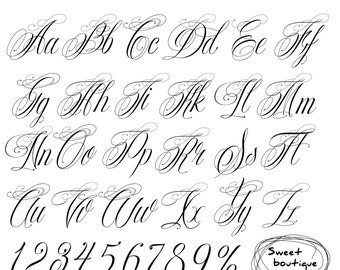 Aa Bb Cc Dd Ee Ff
Gg Hh Ii Kk Ll Mm
Nn Oo Pp Rr Ss Tt
Uu Vv Ww Xx Yy Zz
123456789%
Sweet
boutique